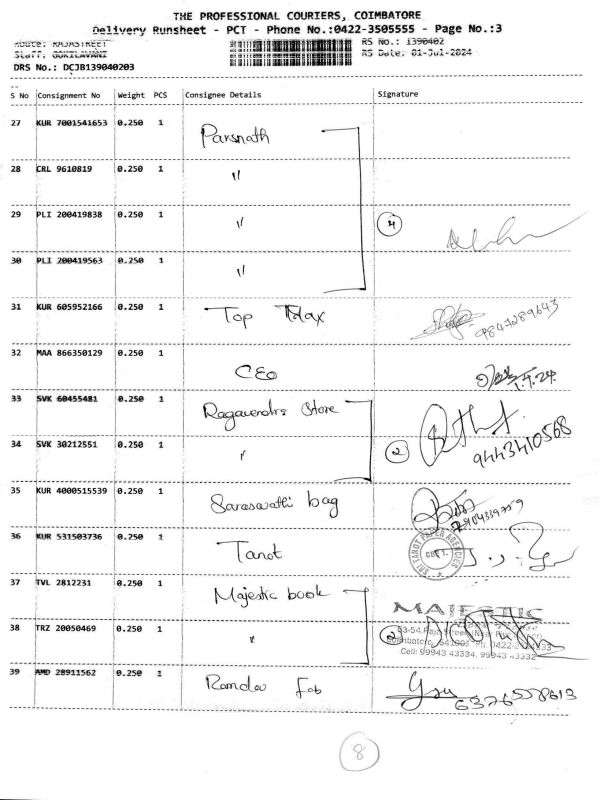 THE PROFESSIONAL COURIERS, COIMBATORE
Delivery Runsheet - PCT - Phone No.:0422-3505555 - Page No.:3
Route: RAJASTREET
RS No.: 1390402
Staff: GOKILAVANI
RS Date: 01-Jul-2024
DRS No.: DCJB139040203
S No Consignment No Weight PCS Consignee Details Signature
27 KUR 7001541653 0.250 1 Parsnath
28 CRL 9610819 0.250 1 "
29 PLI 200419838 0.250 1 " 4
30 PLI 200419563 0.250 1 "
31 KUR 605952166 0.250 1 Top Max 9847289643
32 MAA 866350129 0.250 1 CEO 1.7.24
33 SVK 60455481 0.250 1 Ragavendra Store
34 SVK 30212551 0.250 1 " 2 9443410568
35 KUR 4000515539 0.250 1 Saraswathi bag
36 KUR 531503736 0.250 1 Tanot SRI TANOT PAPER AGENCIES CBE
37 TVL 2812231 0.250 1 Majestic book MAJESTIC
38 TRZ 20050469 0.250 1 " 2
Cell: 99943 43334, 99943 43332
39 AMD 28911562 0.250 1 Ramdev Fab
8